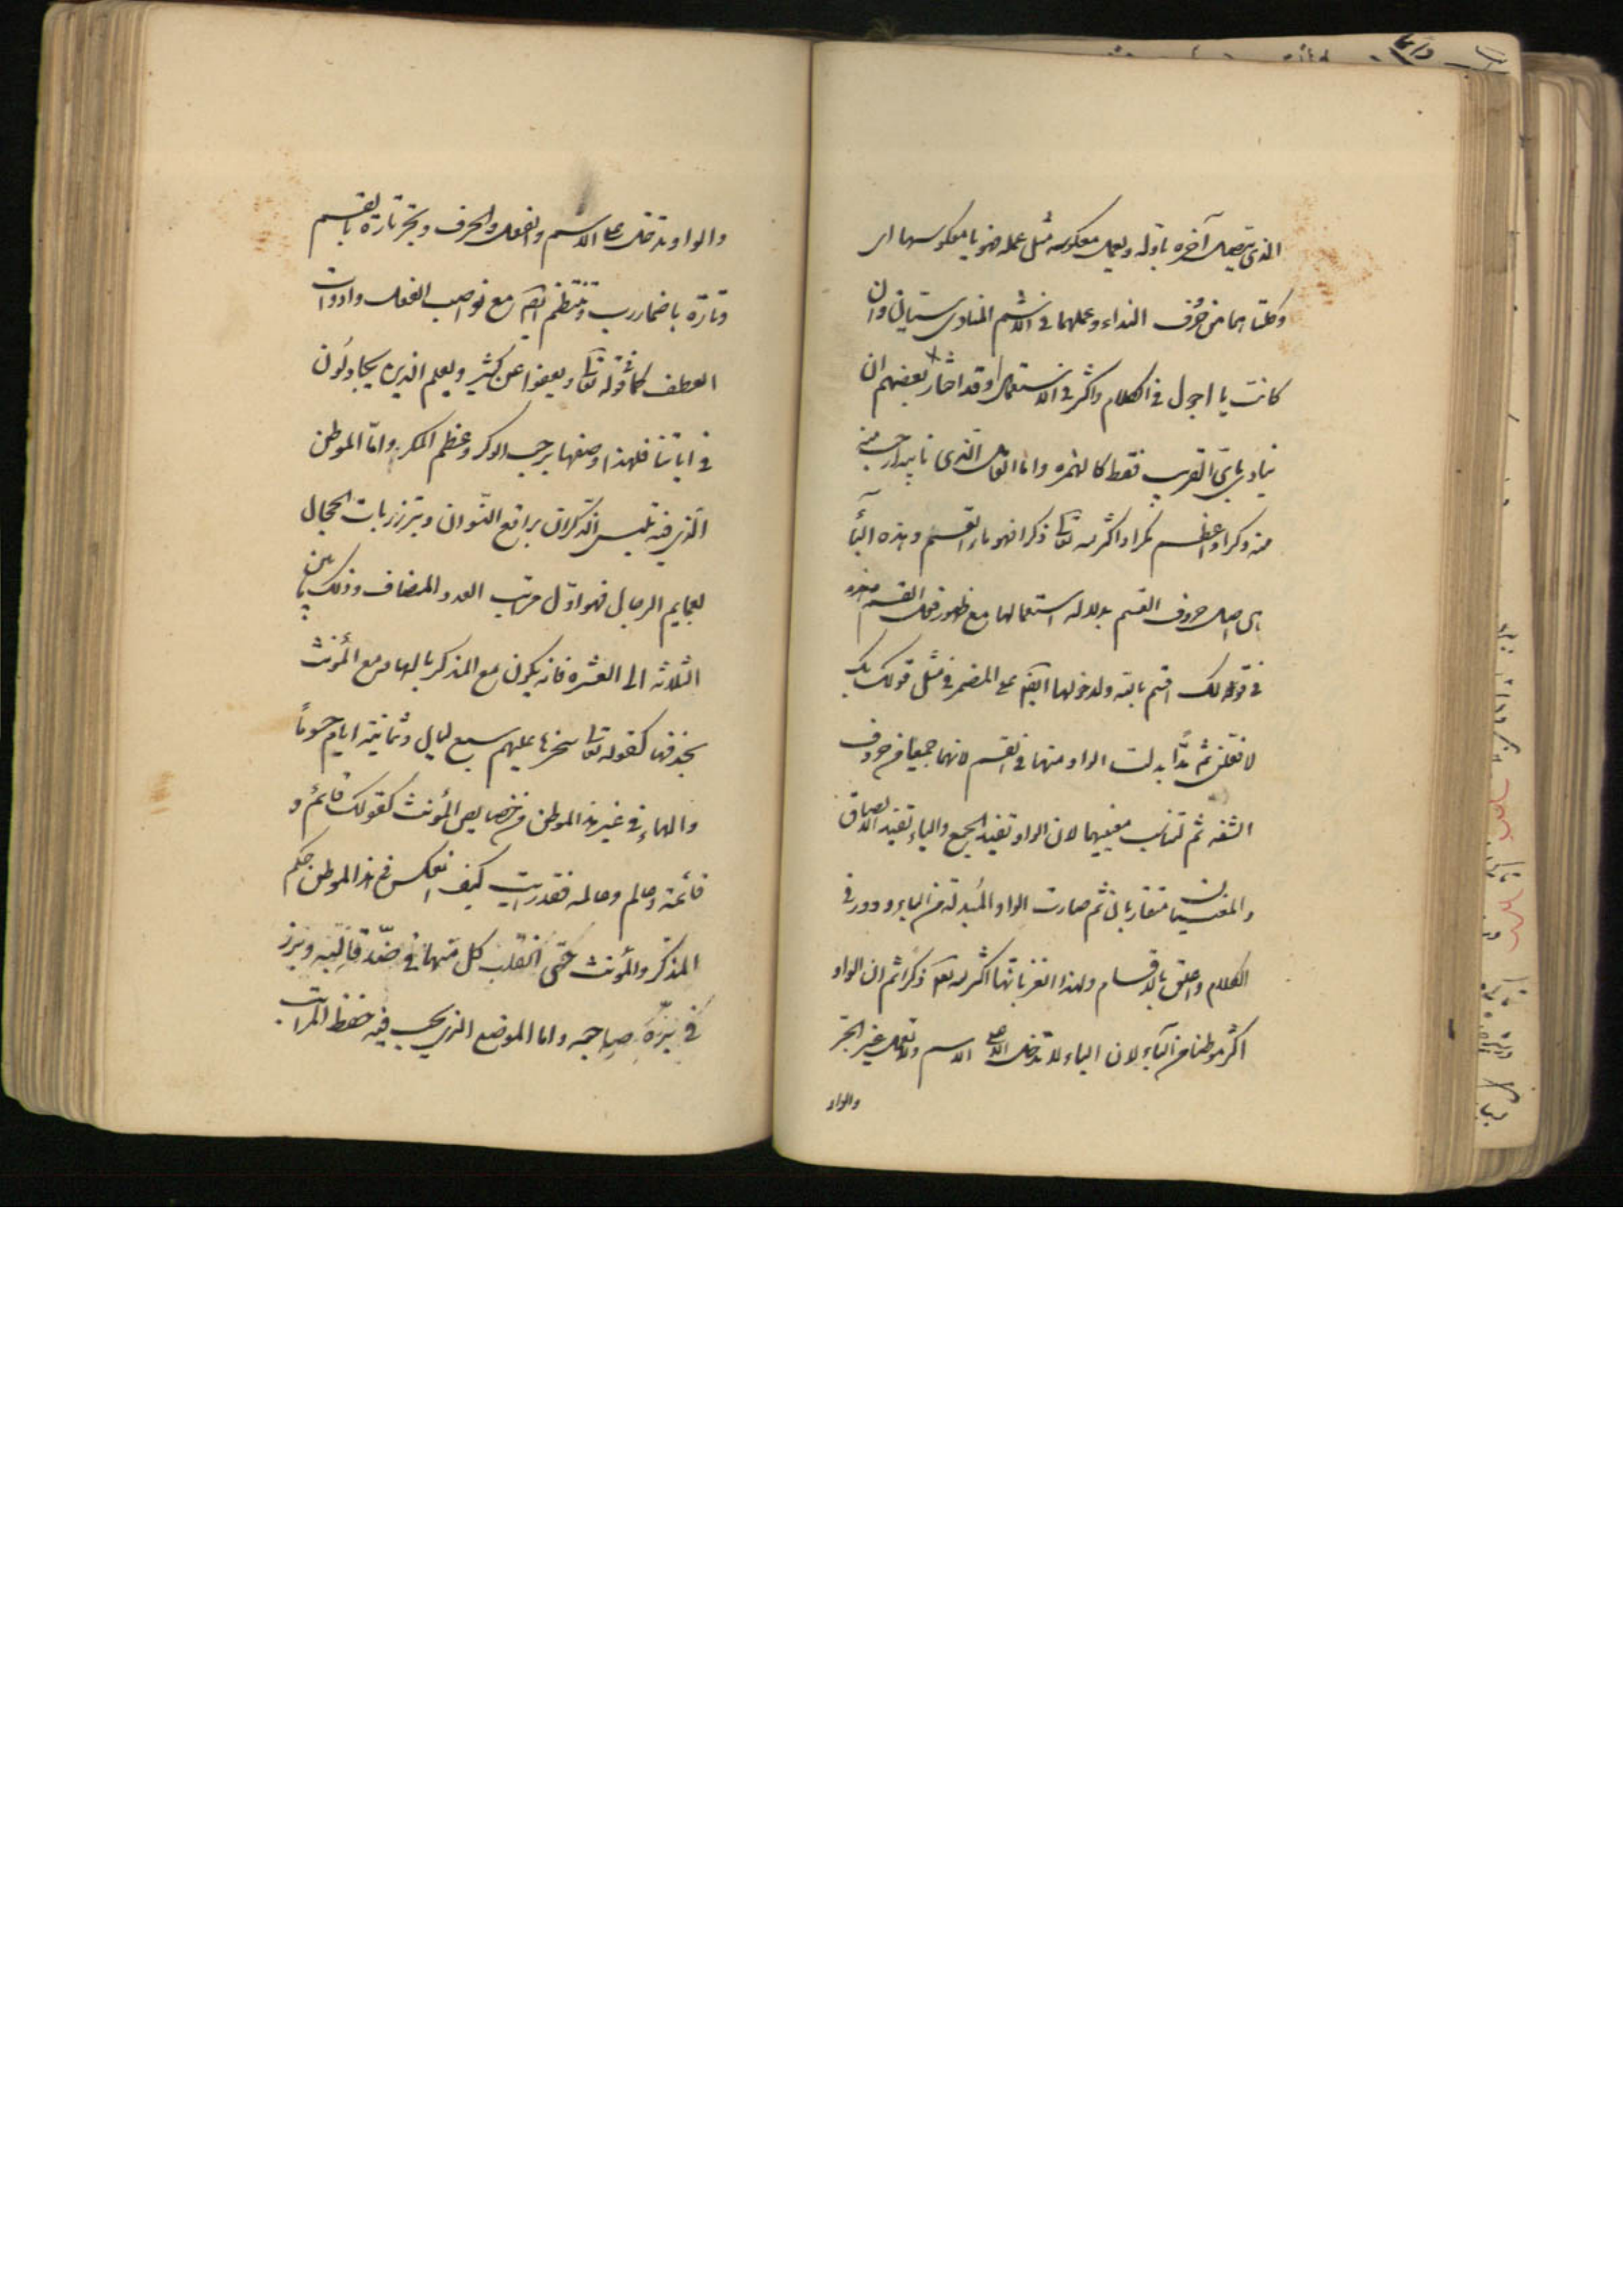 الذى يتصل آخره باوله ويعمل معكوسه مثل عمله فهو يا معكوسها اى
وكلتاهما من حرف النداء وعملهما فى الاسم المنادى سيان وان
كانت يا اجول فى الكلام واكثر فى الاستعمال وقد اختار بعضهم ان
ينادى باى القريب فقط كالهمزه واما العامل الذى نايبه ارحب
منه وكرا واعظم مكرا واكثر لله تعالى ذكرا فهو باء القسم وهذه الباء
هى اصل حروف القسم بدلاله استعمالها مع ظهور فعل القسم
فى قولك اقسم بالله ولدخولها ايضا على المضمر فى مثل قولك بك
لافعلن ثم ابدلت الواو منها فى القسم لانهما جميعا من حروف
الشفه ثم لتناسب معنييهما لان الواو تفيد الجمع والباء تفيد الالصاق
والمعنيان متقاربان ثم صارت الواو المبدلة من الباء ودور فى
الكلام واعلق بالاقسام ولهذا الغز بانها اكثر لله ذكرا ثم ان الواو
اكثر موطنا من الباء لان الباء لا تدخل الا على الاسم ولا تعمل غير الجر
والواو
والواو تدخل على الاسم والفعل والحرف وتجر تارة بالقسم
وتارة باضمار رب وتنتظم ايضا مع نواصب الفعل وادوات
العطف كما فى قوله تعالى ويعفوا عن كثير ويعلم الذين يجادلون
فى اياتنا فلهذا وصفها برحب الوكر وعظم المكر واما الموطن
الذى فيه تلبس الذكران براقع النسوان وتبرز ربات الحجال
بعمايم الرجال فهو اول مراتب العدد المضاف وذلك ما بين
الثلاثه الى العشره فانه يكون مع المذكر بالهاء ومع المؤنث
بحذفها كقوله تعالى سخرها عليهم سبع ليال وثمانية ايام حسوما
والهاء فى غير هذا الموطن من خصايص المؤنث كقولك قائم و
قائمة وعالم وعالمه فقد رايت كيف انعكس فى هذا الموطن حكم
المذكر والمؤنث حتى انقلب كل منهما فى ضد قالبه وبرز
فى بزة صاحبه واما الموضع الذى يجب فيه حفظ المراتب